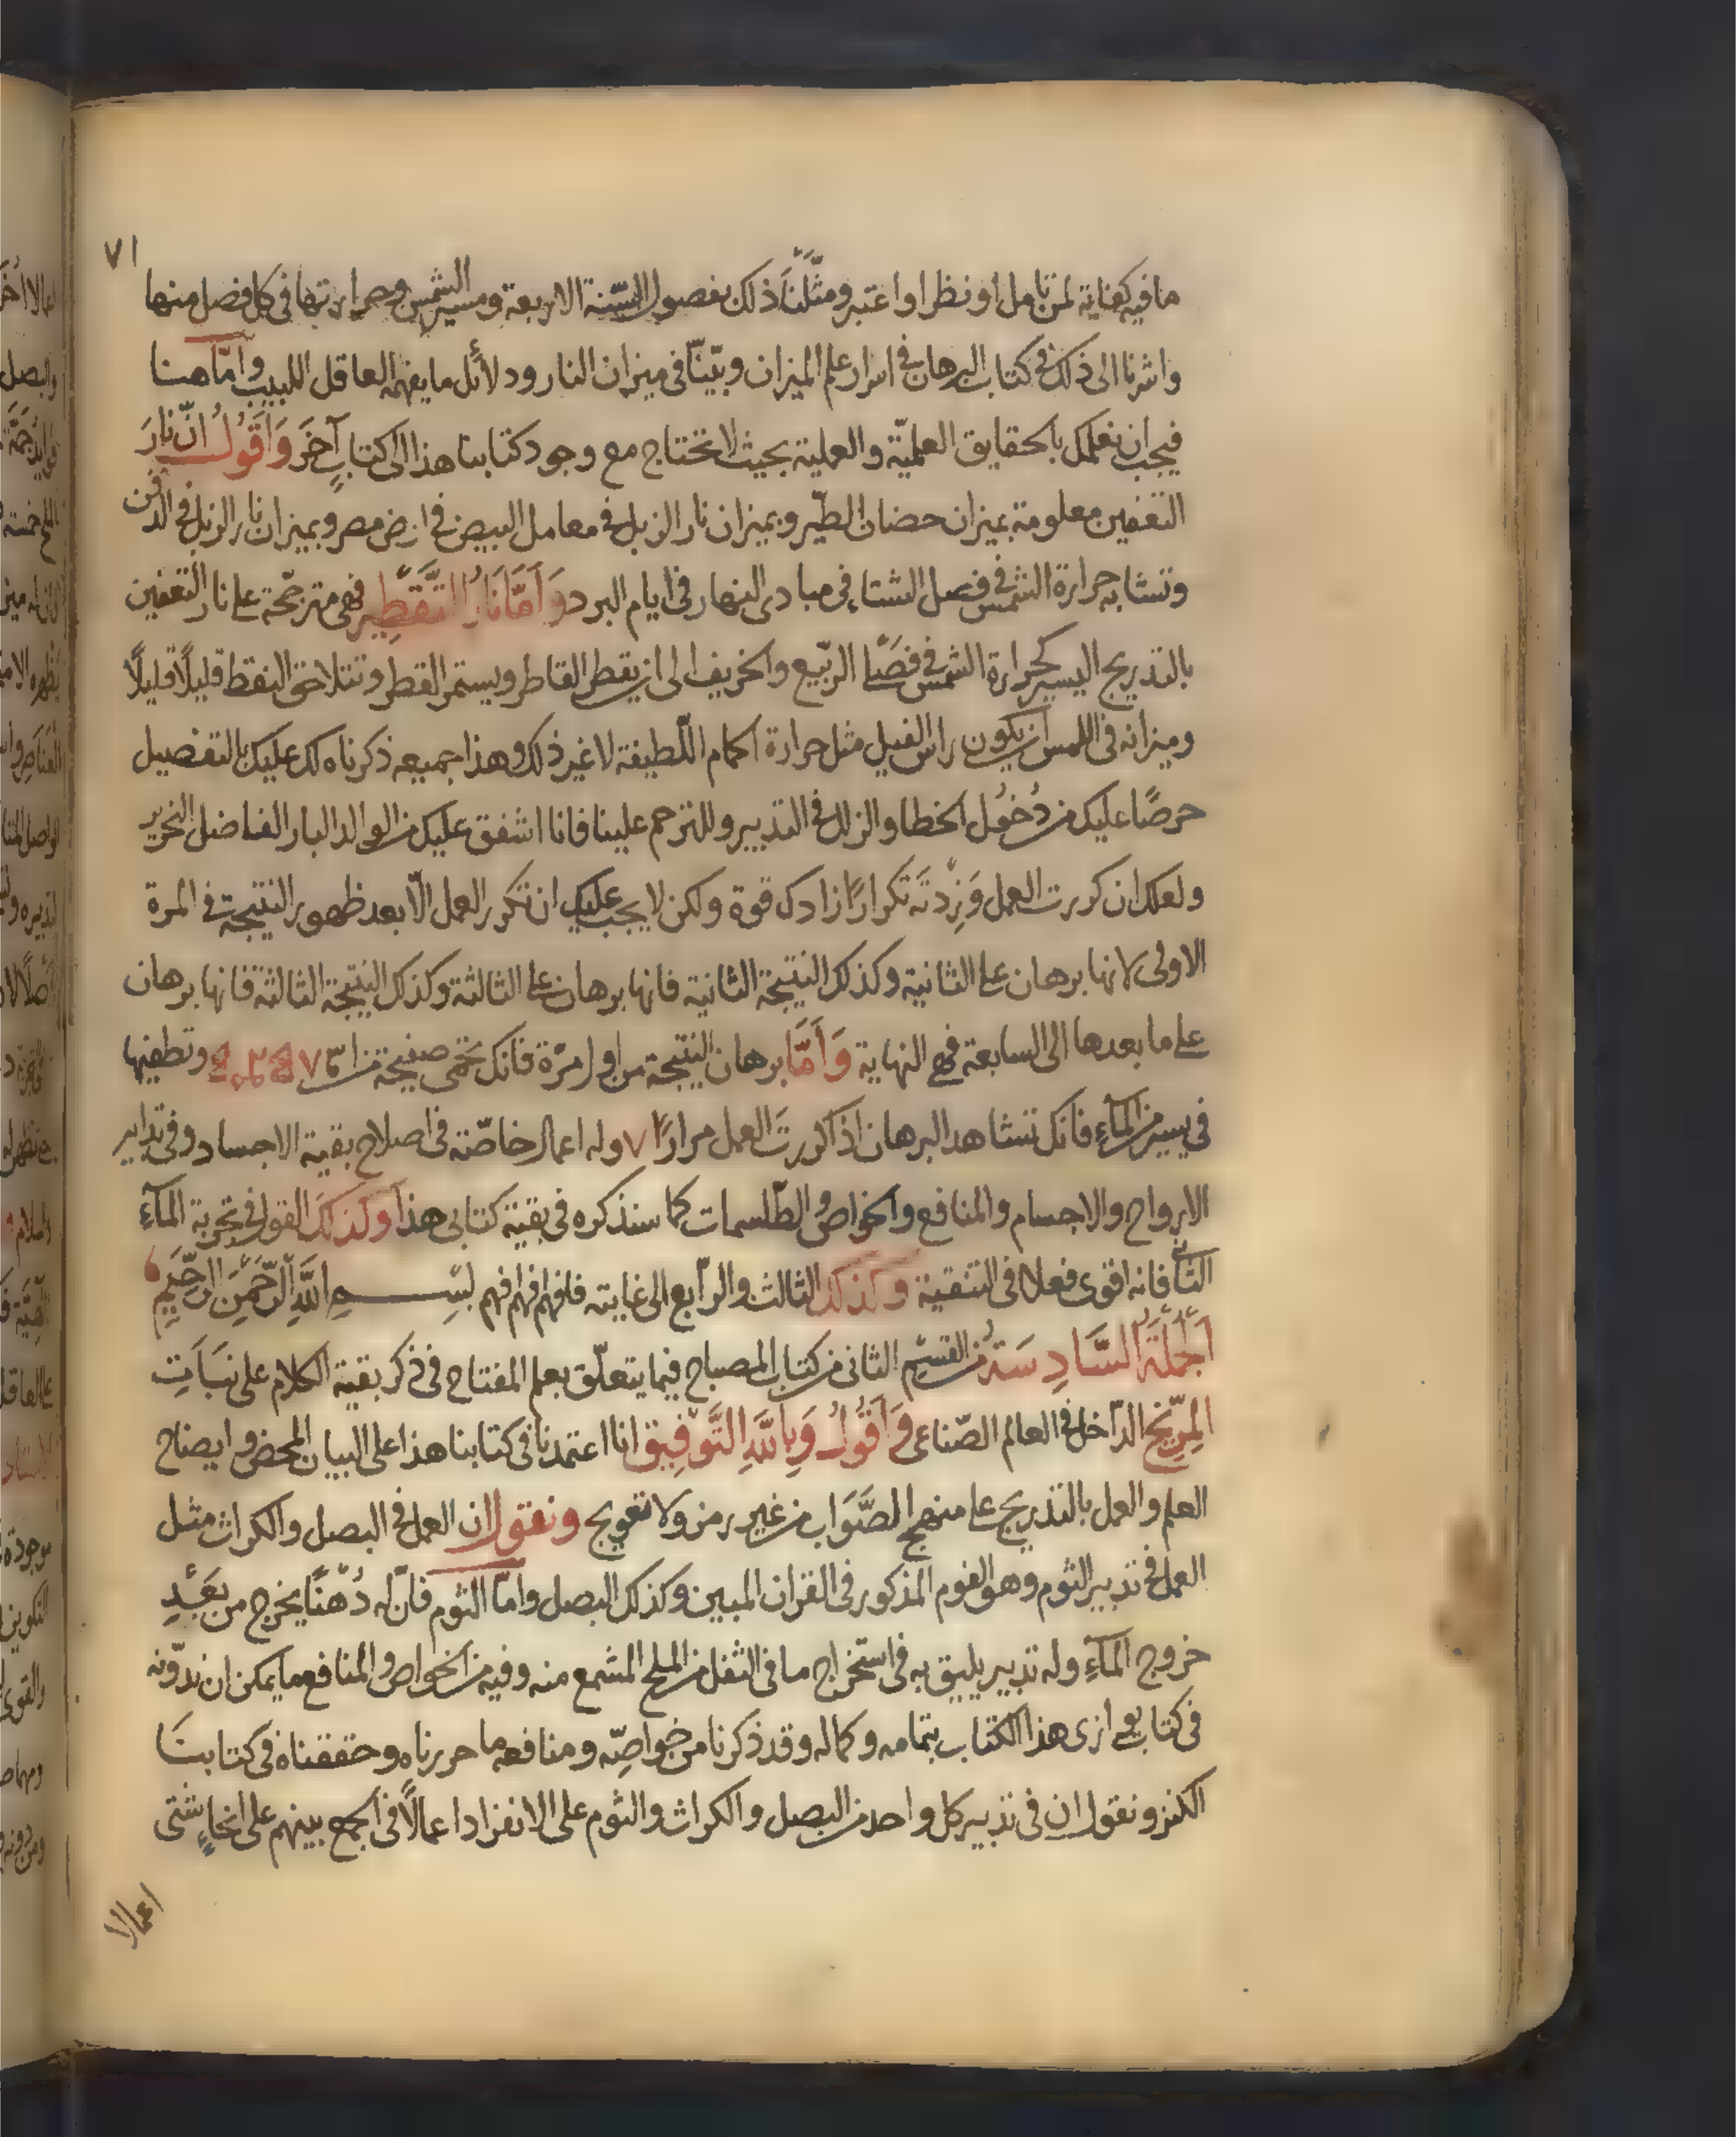 ٧١
ما فيه كفاية لمن تامل او نظر او اعتبر ومثّلنا ذلك بفصول السّنة الاربعة ومسير الشمس وحرارتها فى كل فصل منها
واشرنا الى ذلك فى كتاب البرهان فى اسرار علم الميزان وبيّنّا فى ميزان النار ودلائل ما يفهمه العاقل اللبيب وامّا هنا
فيجب ان نعلمك بالحقايق العلميّة والعملية بحيث لا تحتاج مع وجود كتابنا هذا الى كتابٍ آخَرَ وَاَقُولُ انّ نارَ
التعفين معلومة بميزان حضان الطّير وبميزان نار الزبل فى معامل البيض فى ارض مصر وبميزان نار الزبل فى الدفن
وتشابه حرارة الشمس فى فصل الشتاء فى مبادى النهار فى ايام البرد وَاَمَّا نَارُ التَّقطِيرِ فهى مترجّحة على نار التعفين
بالتدريج اليسير كحرارة الشمس فى فصلى الربيع والخريف الى ان يقطر القاطر ويستمر القطر وتتلاحق النقط قليلًا قليلًا
وميزانه فى اللمس ان يكون راس الفيل مثل حرارة الحمام اللّطيفة لا غير ذلك وهذا جميعه ذكرناه لك عليك بالتفصيل
حرصًا عليك من دُخُول الخطا والزلل فى التدبير وللترحم علينا فانا اشفق عليك من الوالد البار الفاضل النحرير
ولعلك ان كررت العمل وَزِدتَه تكرارًا زادك قوة ولكن لا يجب عليك ان تكرر العمل الّا بعد ظهور النتيجة فى المرة
الاولى لانها برهان على الثانية وكذلك النتيجة الثانية فانها برهان على الثالثة وكذلك النتيجة الثالثة فانها برهان
على ما بعدها الى السابعة فهى النهاية وَاَمَّا برهان النتيجة من اول مرّة فانك تحمى صفيحة من وتطفيها
فى يسير من المآء فانك تشاهد البرهان اذا كررت العمل مرارًا ٧ وله اعمال خاصّة فى اصلاح بقية الاجساد وفى تدابير
الارواح والاجسام والمنافع والخواص والطّلسمات كما سنذكره فى بقية كتابى هذا وكذلك القول فى تجربة المآء
الثانى فانه اقوى فعلا فى التنقية وكذلك الثالث والرّابع الى غايته فافهم افهم افهم بسم اللّه الرّحمن الرّحيم
اَلجُملَةُ السَّادِسَةُ من القسم الثانى من كتاب المصباح فيما يتعلّق بعلم المفتاح فى ذكر بقية الكلام على نباتِ
المِرّيخ الدّاخل فى العالم الصّناعى وَاَقُولُ وَبِاللّهِ التَّوفِيق انا اعتمدنا فى كتابنا هذا على البيان المحض وايضاح
العلم والعمل بالتدريج على منهج الصَّوَاب من غير رمز ولا تعويج ونقول ان العمل فى البصل والكراث مثل
العمل فى تدبير الثوم وهو الفوم المذكور فى القران المبين وكذلك البصل وامّا الثوم فانّ له دُهْنًا يخرج من بَعْدِ
خروج المآء وله تدبير يليق به فى استخراج ما فى الثفل من الملح المشمع منه وفيه من الخواص والمنافع ما يمكن ان ندوّنه
فى كتاب يوازى هذا الكتاب بتمامه وكماله وقد ذكرنا من خواصّه ومنافعه ما حررناه وحققناه فى كتابنا
الكنز ونقول ان فى تدبير كل واحد من البصل والكراث والثوم على الانفراد اعمالًا فى الجمع بينهم على انحاءٍ شتى
اعمالا